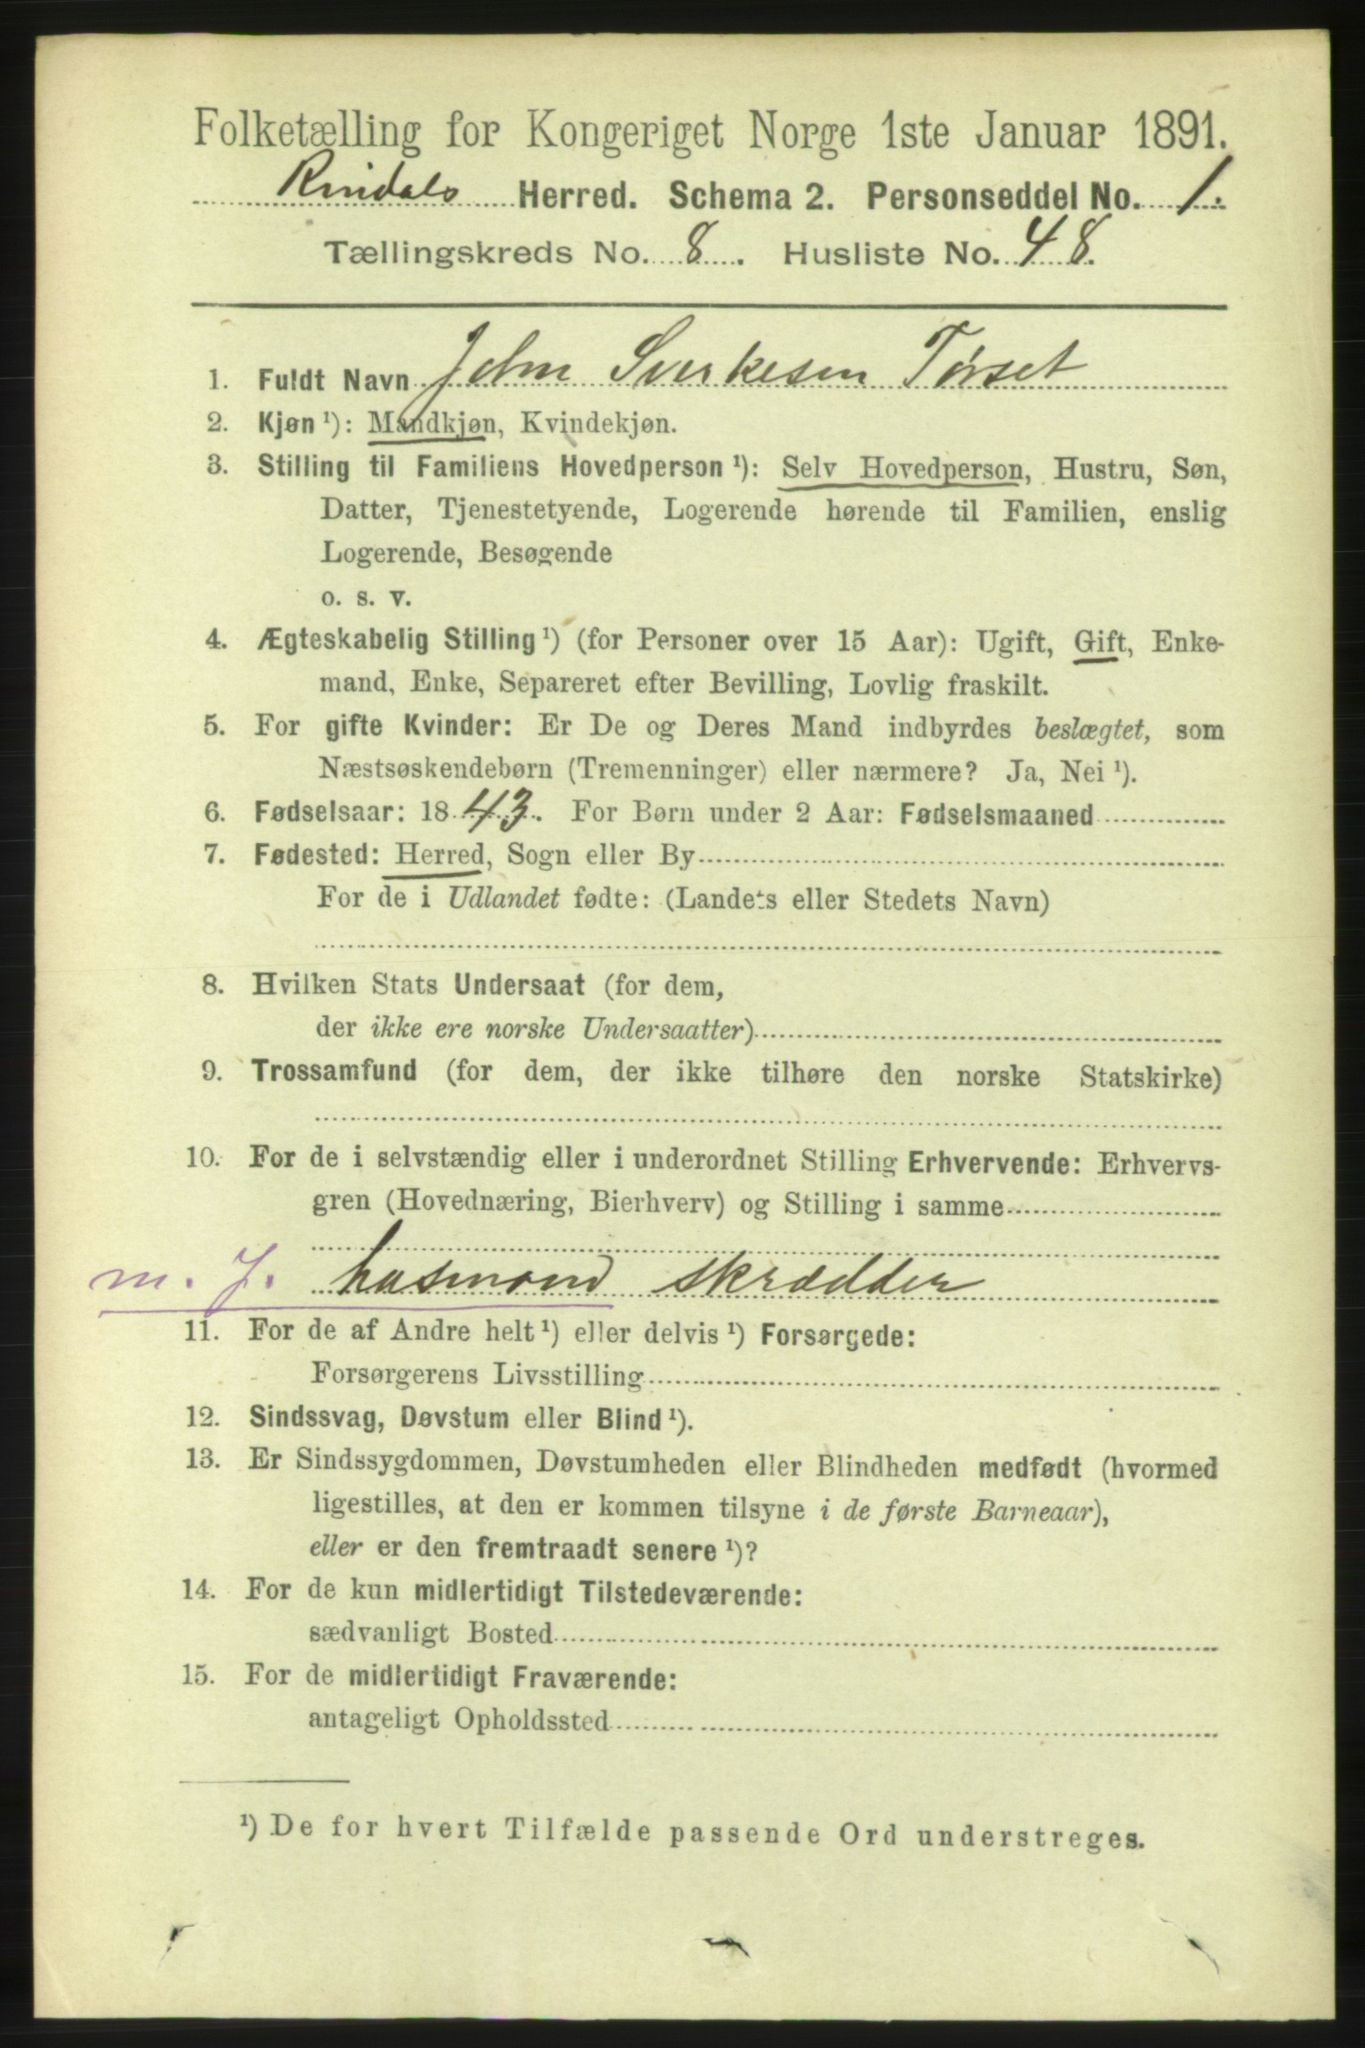 Folketælling for Kongeriget Norge 1ste Januar 1891.
Rindals Herred. Schema 2. Personseddel No. 1.
Tællingskreds No. 8. Husliste No. 48.
1. Fuldt Navn John Sverkesen Tørset
2. Kjøn ¹): Mandkjøn, Kvindekjøn.
3. Stilling til Familiens Hovedperson ¹): Selv Hovedperson, Hustru, Søn,
Datter, Tjenestetyende, Logerende hørende til Familien, enslig
Logerende, Besøgende
o. s. v.
4. Ægteskabelig Stilling ¹) (for Personer over 15 Aar): Ugift, Gift, Enke-
mand, Enke, Separeret efter Bevilling, Lovlig fraskilt.
5. For gifte Kvinder: Er De og Deres Mand indbyrdes beslægtet, som
Næstsøskendebørn (Tremenninger) eller nærmere? Ja, Nei ¹).
6. Fødselsaar: 1843. For Børn under 2 Aar: Fødselsmaaned
7. Fødested: Herred, Sogn eller By
For de i Udlandet fødte: (Landets eller Stedets Navn)
8. Hvilken Stats Undersaat (for dem,
der ikke ere norske Undersaatter)
9. Trossamfund (for dem, der ikke tilhøre den norske Statskirke)
10. For de i selvstændig eller i underordnet Stilling Erhvervende: Erhvervs-
gren (Hovednæring, Bierhverv) og Stilling i samme
m. J. husmand skrædder
11. For de af Andre helt ¹) eller delvis ¹) Forsørgede:
Forsørgerens Livsstilling
12. Sindssvag, Døvstum eller Blind ¹).
13. Er Sindssygdommen, Døvstumheden eller Blindheden medfødt (hvormed
ligestilles, at den er kommen tilsyne i de første Barneaar),
eller er den fremtraadt senere ¹)?
14. For de kun midlertidigt Tilstedeværende:
sædvanligt Bosted
15. For de midlertidigt Fraværende:
antageligt Opholdssted
¹) De for hvert Tilfælde passende Ord understreges.